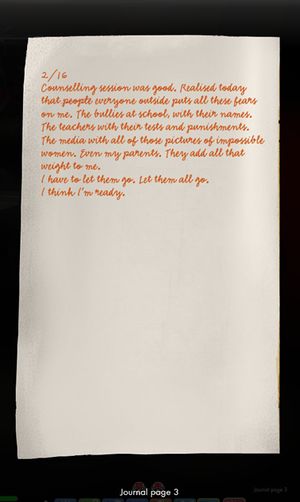 2/16
Counselling session was good. Realised today
that people everyone outside puts all these fears
on me. The bullies at school, with their names.
The teachers with their tests and punishments.
The media with all of those pictures of impossible
women. Even my parents. They add all that
weight to me.
I have to let them go. Let them all go.
I think I'm ready.
Journal page 3
Journal page 3